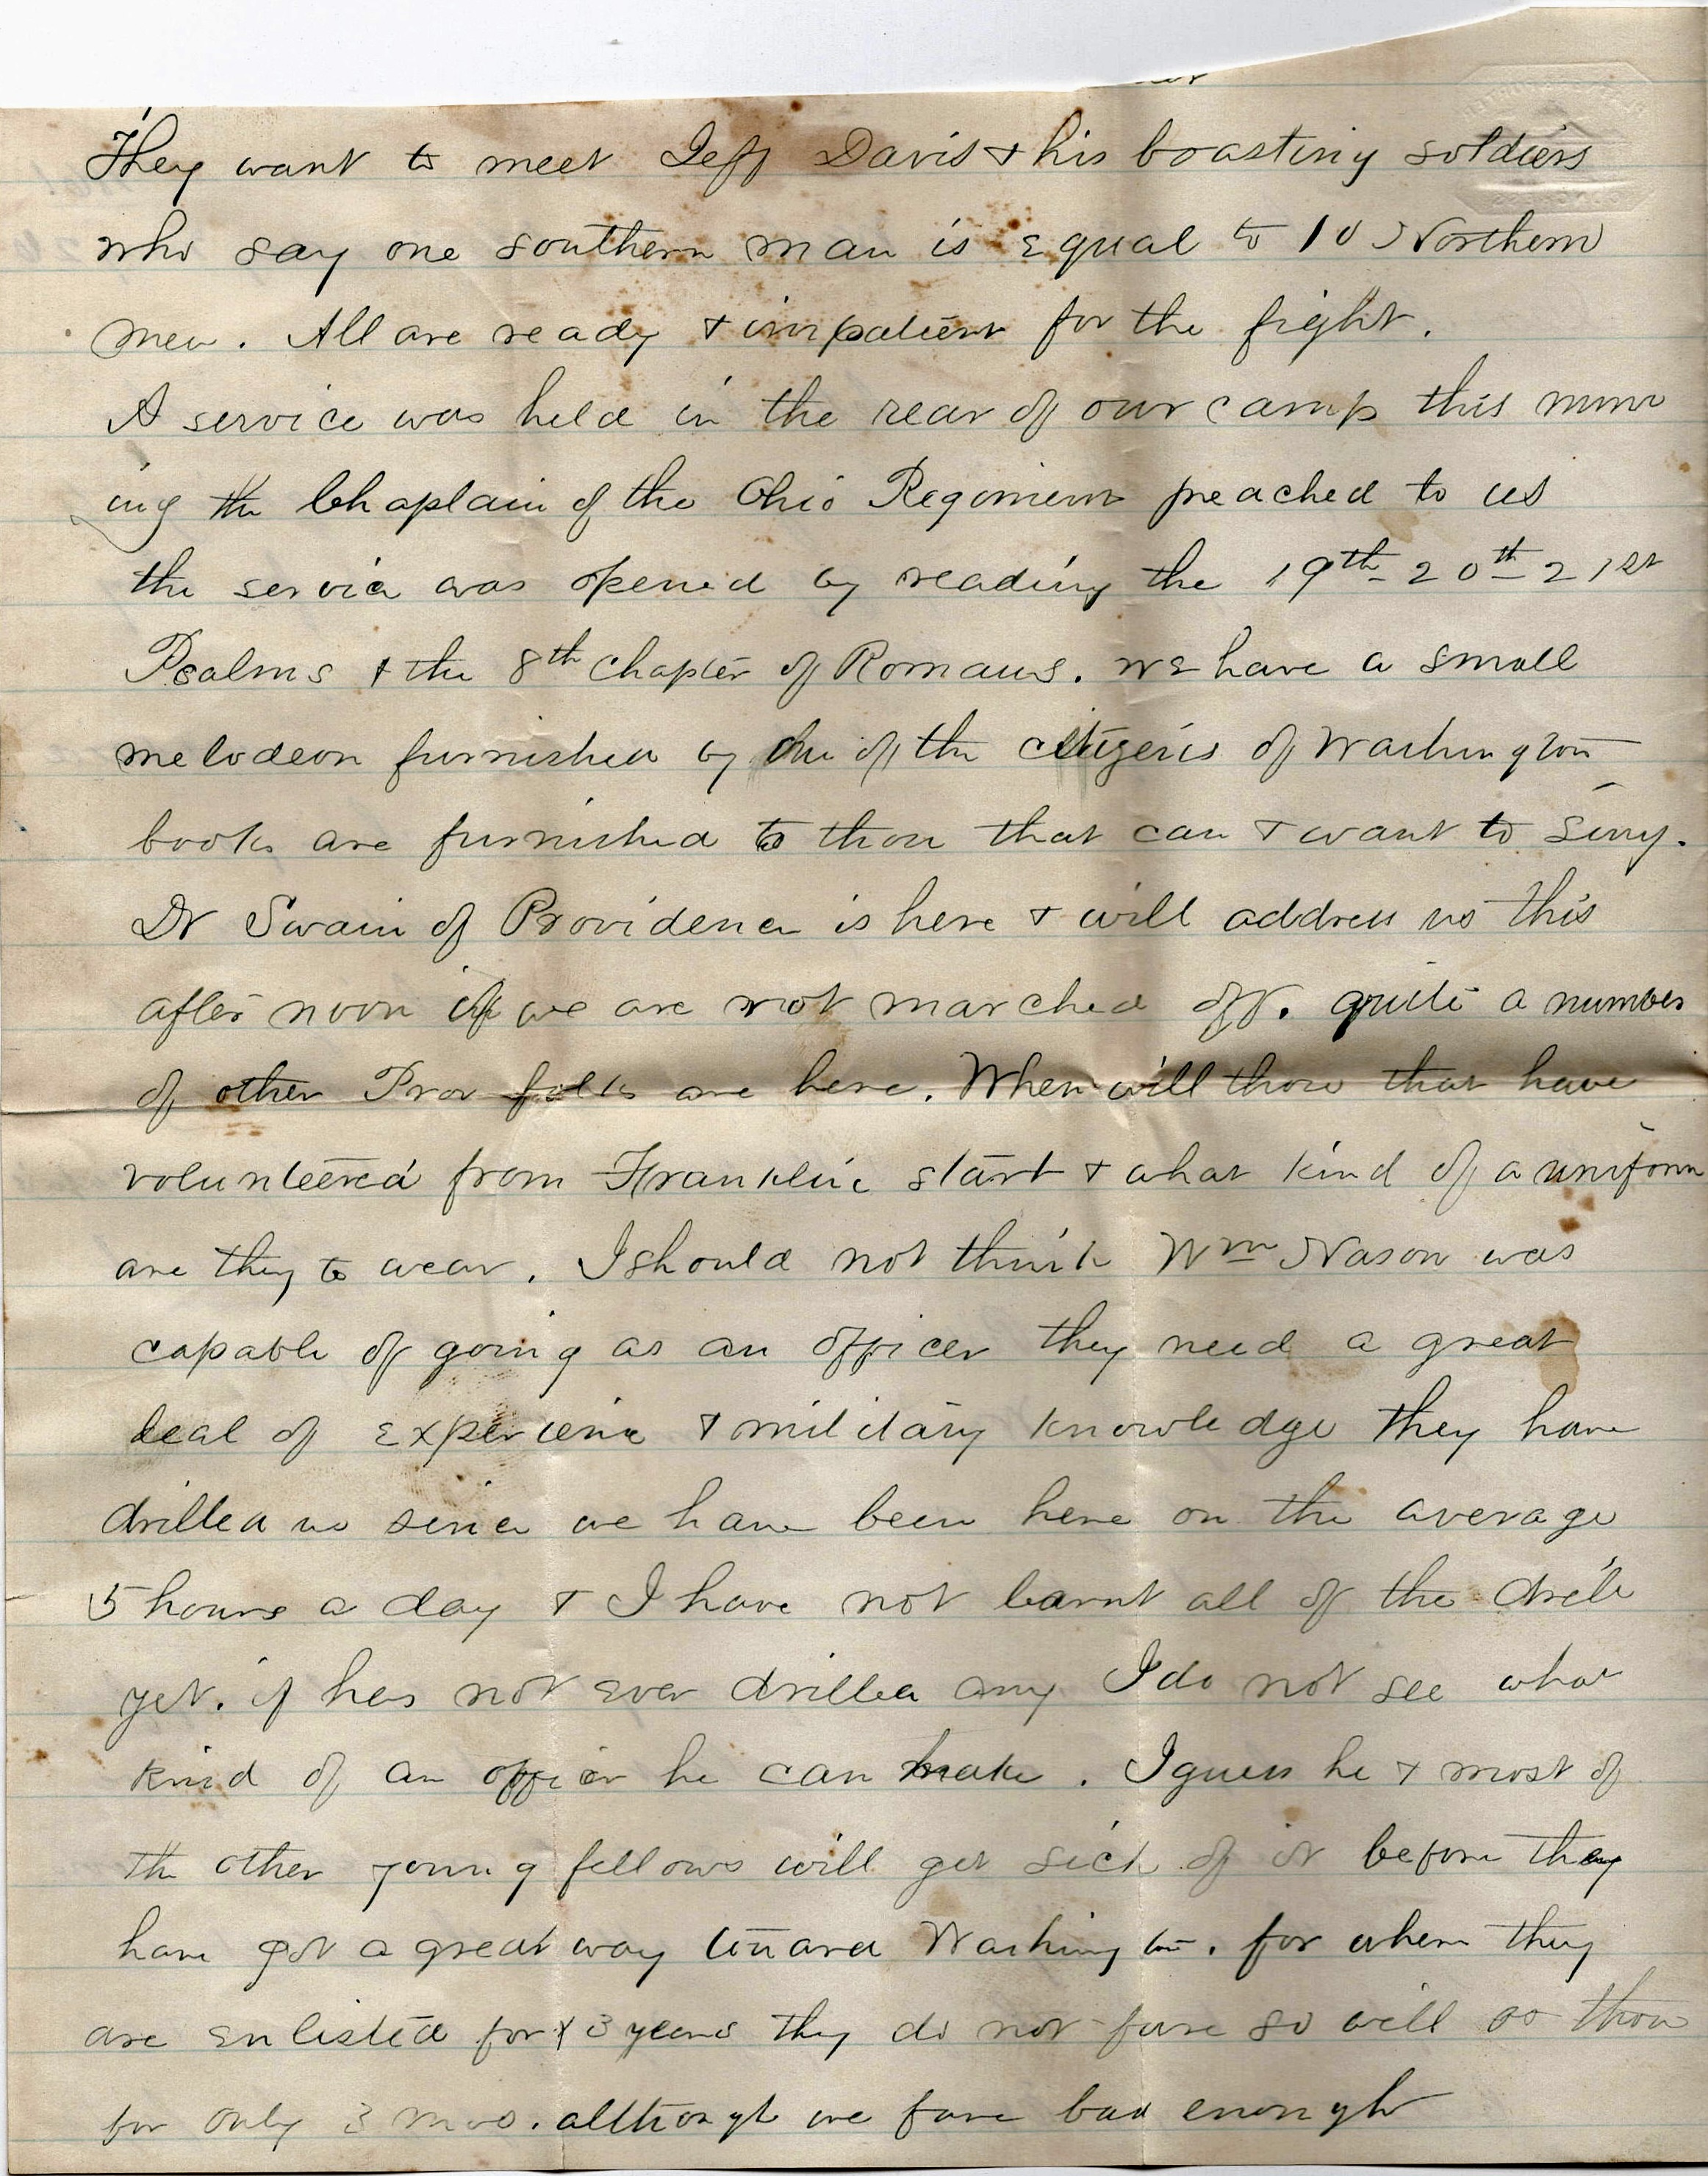 They want to meet Jeff Davis & his boasting soldiers
who say one southern man is equal to 10 Northern
men. All are ready & impatient for the fight.
A service was held in the rear of our camp this morn
ing the Chaplain of the Ohio Regiment preached to us
the service was opened by reading the 19th 20th 21st
Psalms & the 8th chapter of Romans. we have a small
melodeon furnished by one of the citizens of Washington
books are furnished to those that can & want to sing.
Dr Swain of Providence is here & will address us this
after noon if we are not marched off. quite a number
of other Prov folks are here. When will those that have
volunteered from Franklin start & what kind of a uniform
are they to wear. I should not think Wm Nason was
capable of going as an officer they need a great
deal of experience & military knowledge they have
drilled us since we have been here on the average
5 hours a day & I have not learnt all of the drill
yet. if has not ever drilled any I do not see what
kind of an officer he can make. I guess he & most of
the other young fellows will get sick of it before they
have got a great way toward Washington. for when they
are enlisted for 3 years they do not fare so well as those
for only 3 mos. although we fare bad enough